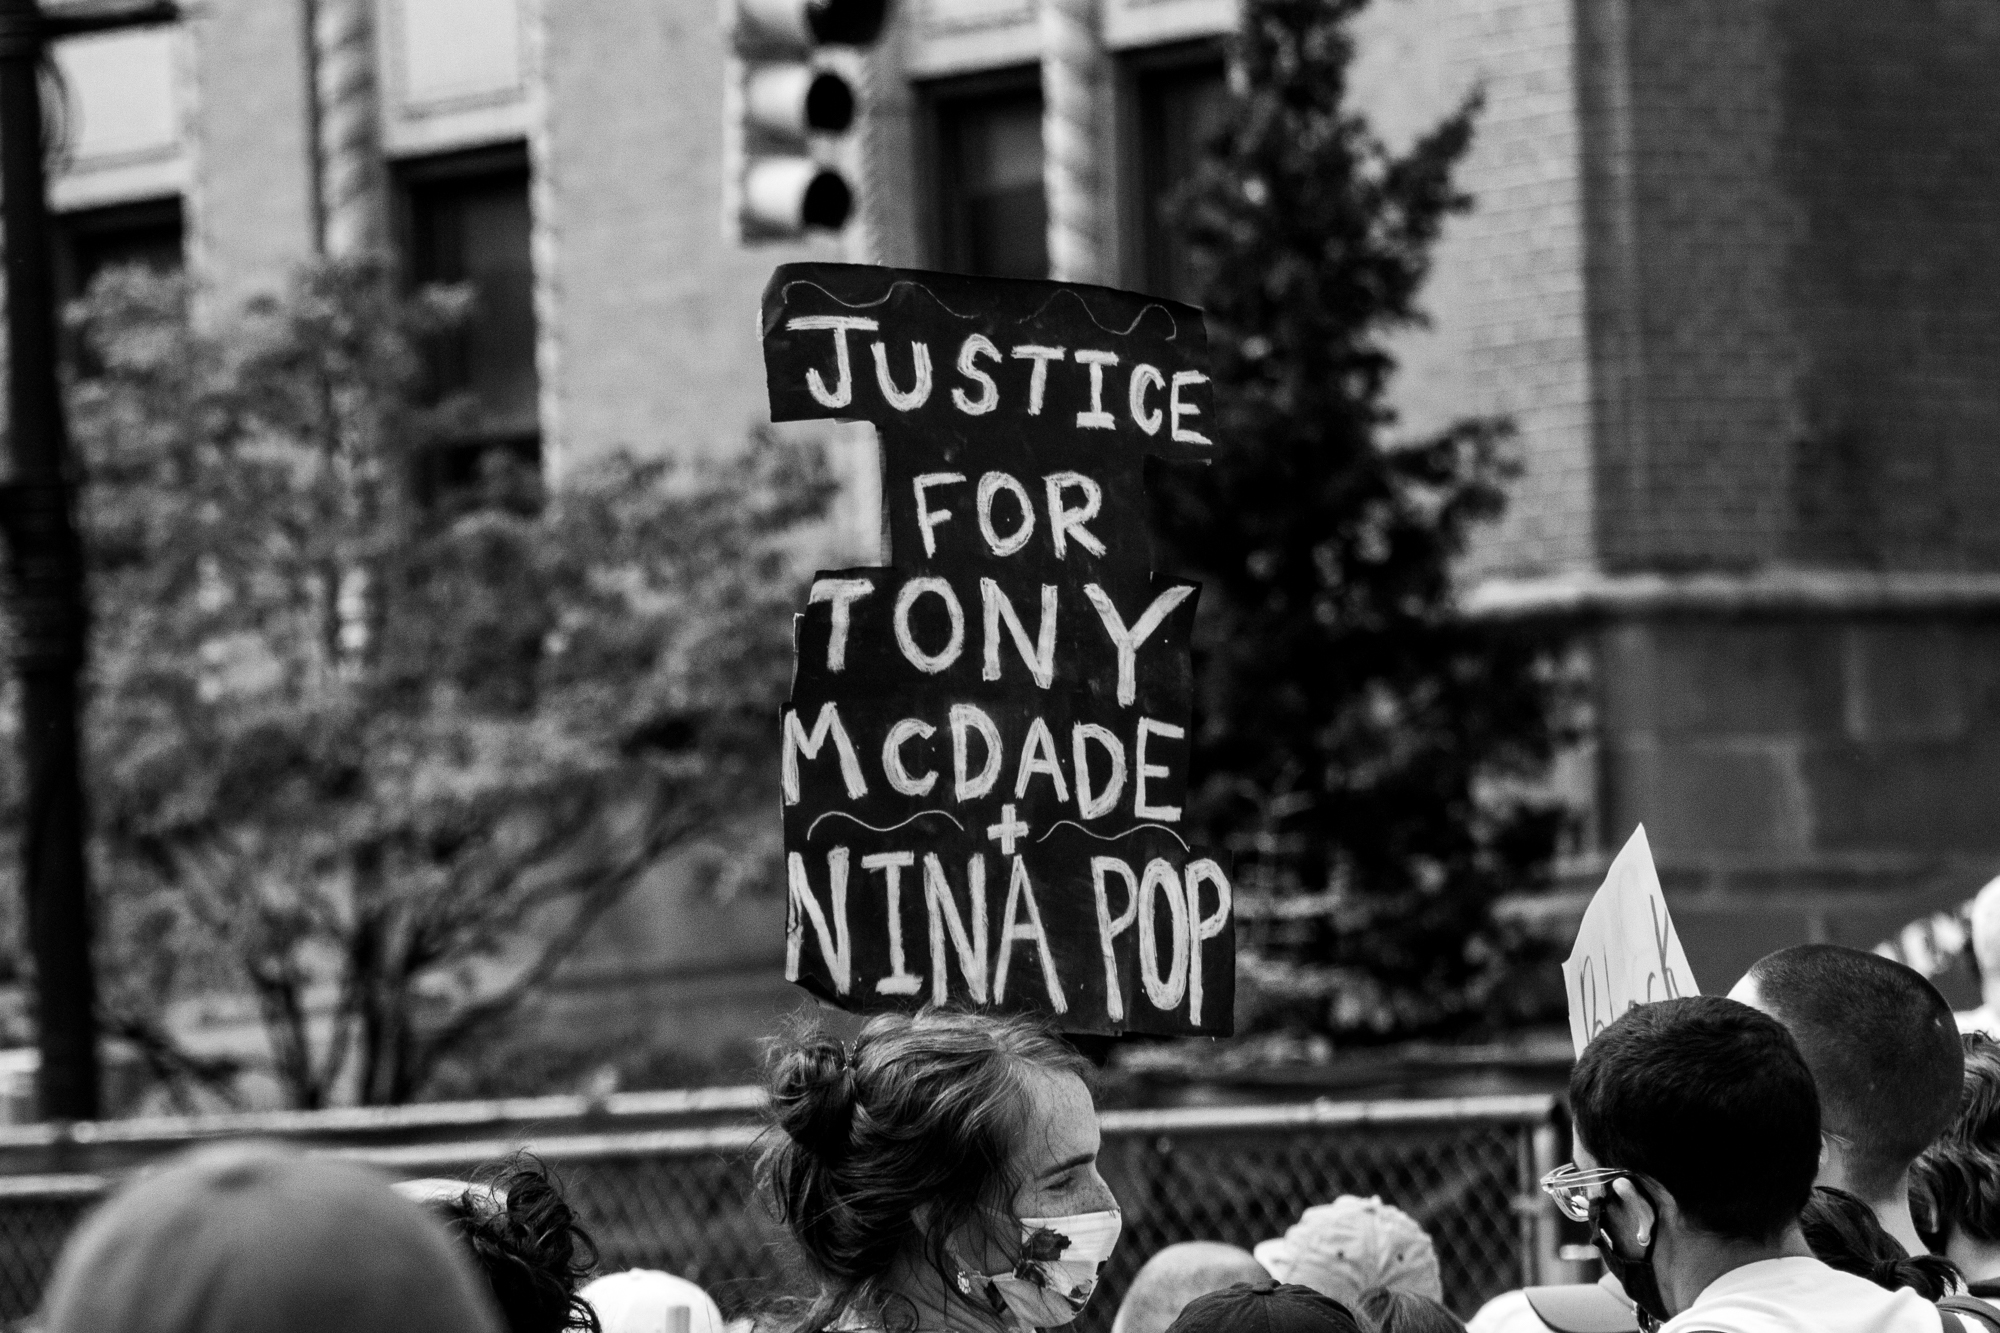 JUSTICE
FOR
TONY
McDADE
+
NINA POP
Black